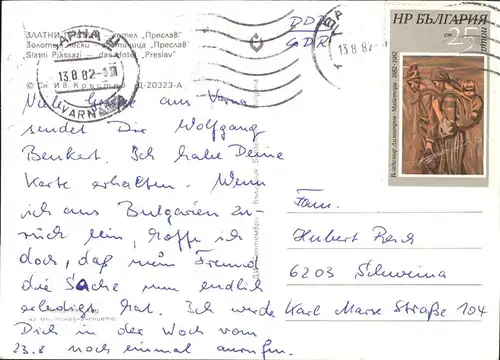 ЗЛАТНИ — хотел „Преслав“
Золотые пески — гостиница „Преслав“
Slatni Pjassazi — das Hotel „Preslav“
© Сн. Ив. Кръстев Д-20323-А
ВАРНА
13.8.82
VARNA
13.8.82
DDR
GDR
НР БЪЛГАРИЯ
поща
25 ст
Владимир Димитров - Майстора 1882-1982
Viele Grüße aus Varna
sendet Dir Wolfgang
Benkert. Ich habe Deine
Karte erhalten. Wenn
ich aus Bulgarien zu-
rück bin, hoffe ich
doch, daß mein Freund
die Sache nun endlich
erledigt hat. Ich werde
Dich in der Woch vom
23.8 noch einmal anrufen.
ДИ „Септември“ България
Fam.
Hubert Resch
6203 Schweina
Karl Marx Straße 104